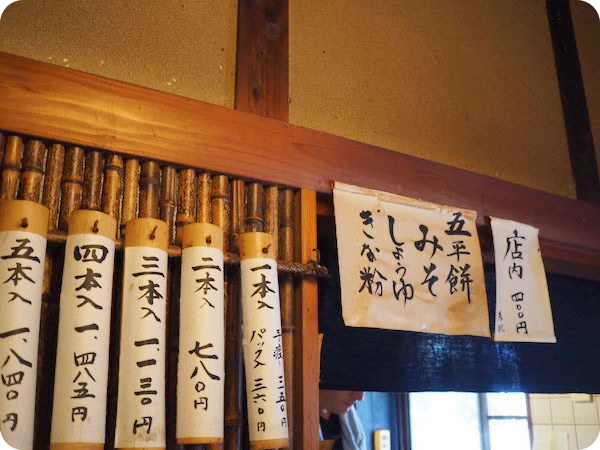 店内 四〇〇円
五平餅
みそ
しょうゆ
きな粉
一本 手渡 三五〇
パック 三六〇円
二本入 七八〇円
三本入 一、一三〇円
四本入 一、四八五円
五本入 一、八四〇円